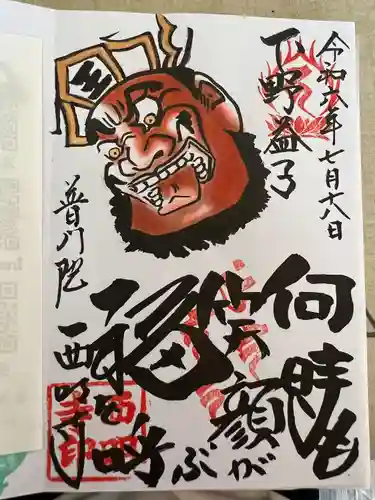 令和六年七月十八日
下野益子
何時も
笑顔が
福を呼ぶ
西明寺
普門院
王